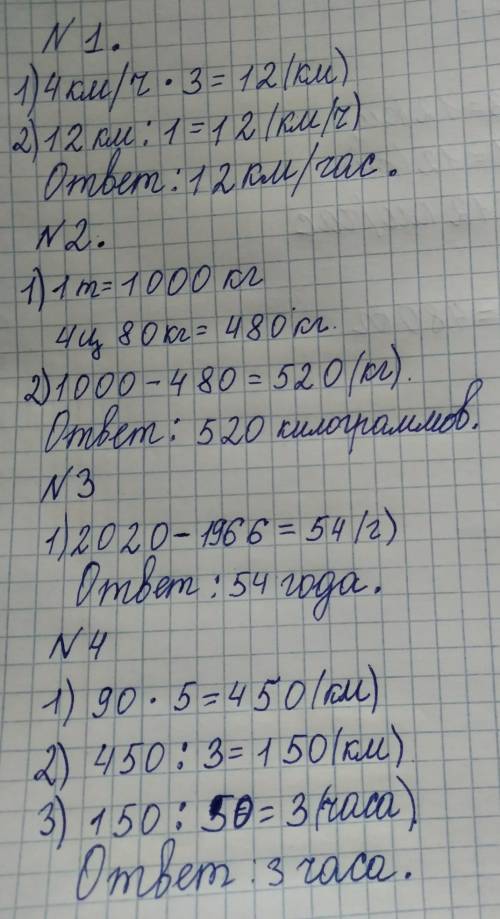 N 1.
1) 4 км/ч · 3 = 12 (км)
2) 12 км : 1 = 12 (км/ч)
Ответ : 12 км/час.
N 2.
1) 1 т = 1000 кг
4ц 80 кг = 480 кг.
2) 1000 - 480 = 520 (кг).
Ответ : 520 килограммов.
N 3
1) 2020 - 1966 = 54 (г)
Ответ : 54 года.
N 4
1) 90 · 5 = 450 (км)
2) 450 : 3 = 150 (км)
3) 150 : 50 = 3 (часа)
Ответ : 3 часа.